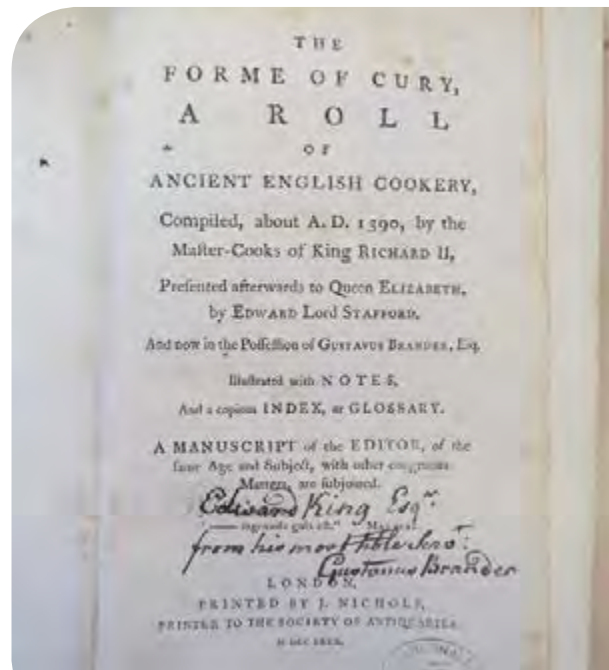 THE
FORME OF CURY,
A ROLL
OF
ANCIENT ENGLISH COOKERY,
Compiled, about A. D. 1390, by the
Maſter-Cooks of King RICHARD II,
Preſented afterwards to Queen ELIZABETH,
by EDWARD Lord STAFFORD.
And now in the Poſſeſſion of GUSTAVUS BRANDER, Eſq.
Illuſtrated with NOTES,
And a copious INDEX, or GLOSSARY.
A MANUSCRIPT of the EDITOR, of the
ſame Age and Subject, with other congruous
Matters, are ſubjoined.
Edward King Esqr.
ingenuils guſt
from his most
Gustavus Brander
LONDON,
PRINTED BY J. NICHOLS,
PRINTER TO THE SOCIETY OF ANTIQUARIES.